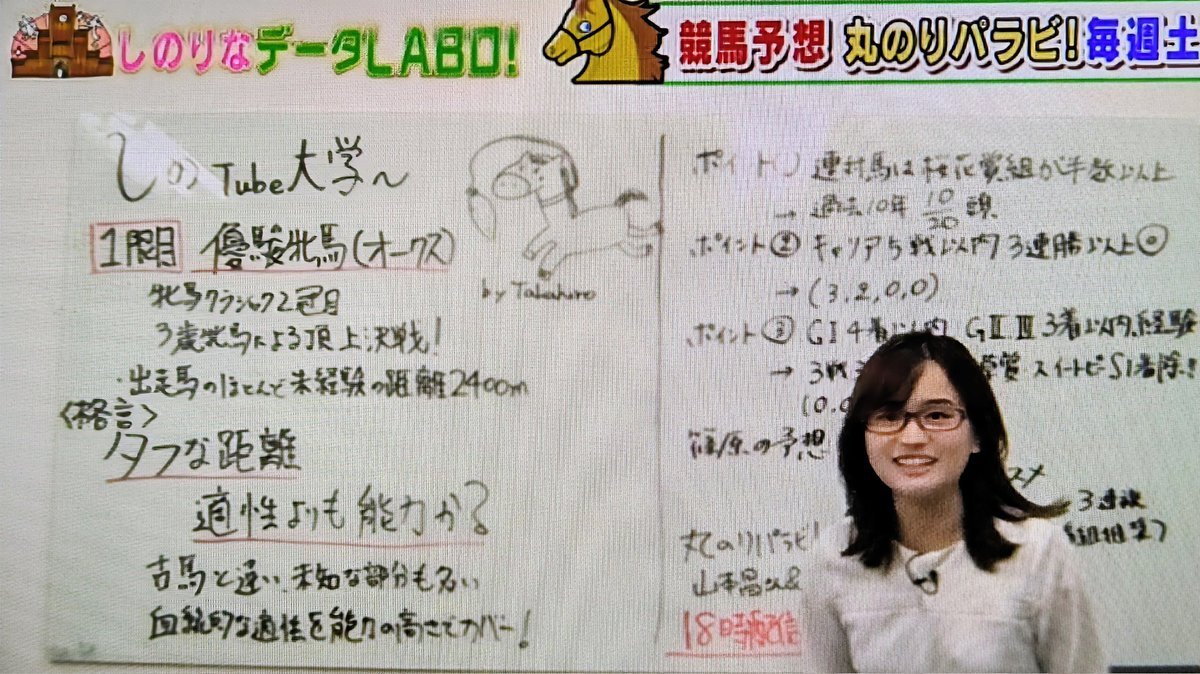 しのりなデータLABO!
競馬予想 丸のりパラビ!毎週土
しのTube大学〜
1問目 優駿牝馬(オークス)
牝馬クラシック2冠目
3歳牝馬による頂上決戦!
・出走馬のほとんど未経験の距離2400m
<格言>
タフな距離
適性よりも能力か?
古馬と違い、未知な部分も多い
血統的な適性を能力の高さでカバー!
by Takahiro
ポイント 連対馬は桜花賞組が半数以上
→ 過去10年 10/20頭
ポイント② キャリア5戦以内 3連勝以上◎
→(3,2,0,0)
ポイント③ GⅠ4着以内 GⅡ Ⅲ 3着以内経験
→ 3戦 スイートピーS1着除く!
篠原の予想
スメ
丸のりパラビ!
山本昌&
18時配信